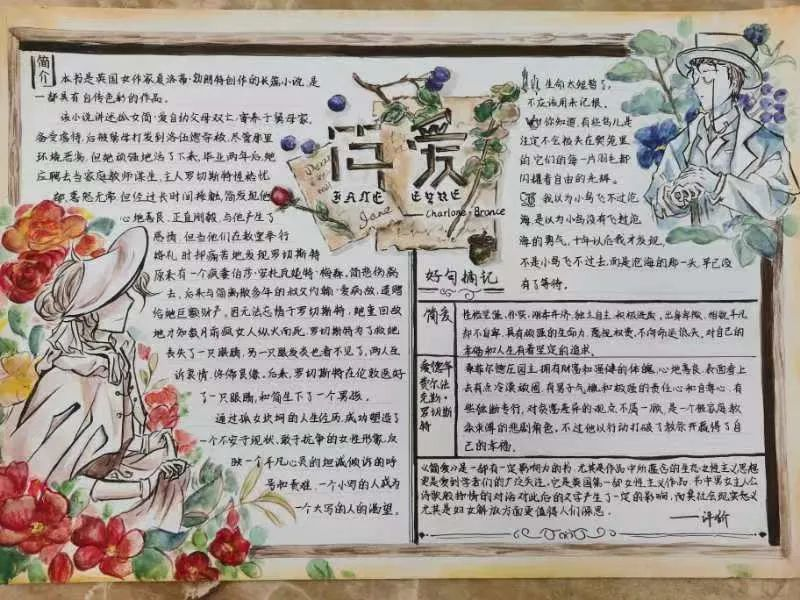 简介
本书是英国女作家夏洛蒂·勃朗特创作的长篇小说,是
一部具有自传色彩的作品。
该小说讲述孤女简·爱自幼父母双亡,寄养于舅母家,
备受虐待,后被舅母打发到洛伍德学校,尽管那里
环境恶劣,但她顽强地活了下来,毕业两年后,她
应聘去当家庭教师谋生,主人罗切斯特性格忧
郁,喜怒无常,但经过长时间接触,简发现他
心地善良、正直刚毅,与他产生了
感情,但当他们在教堂举行
婚礼时却痛苦地发现罗切斯特
原来有一个疯妻伯莎·安托瓦妮特·梅森,简悲伤离
去,后来与简离散多年的叔父约翰·爱病故,遗赠
给她巨额财产,因无法忘情于罗切斯特,她重回故
地才知数月前疯女人纵火而死,罗切斯特为了救她
丧失了一只眼睛,另一只眼发炎也看不见了,两人互
诉衷情,终得良缘,后来,罗切斯特在伦敦医好
了一只眼睛,和简生下了一个男孩。
通过孤女坎坷的人生经历,成功塑造了
一个不安于现状,敢于抗争的女性形象,反
映一个平凡心灵的坦诚倾诉的呼
号和责难,一个小写的人成为
一个大写的人的渴望。
简爱
JANE EYRE
Jane
Charlone·Bronce
生命太短暂了,
不应该用来记恨。
你知道,有些鸟儿是
注定不会被关在樊笼里
的,它们的每一片羽毛都
闪耀着自由的光辉。
我以为小鸟飞不过沧
海,是以为小鸟没有飞过沧
海的勇气,十年以后我才发现,
不是小鸟飞不过去,而是沧海的那一头,早已没
有了等待。
好句摘记
简爱
性格坚强、朴实、刚柔并济、独立自主、积极进取,出身卑微,相貌平凡
却不自卑,具有顽强的生命力,蔑视权贵,不向命运低头,对自己的
幸福和人生有着坚定的追求。
爱德华·
费尔法
克斯·
罗切斯
特
桑菲尔德庄园主,拥有财富和强健的体魄,心地善良,表面看上
去有点冷漠顽固,有男子气概和极强的责任心和自尊心,有
些独断专行,对贫富差异的观点不屑一顾,是一个被家庭教
条束缚的悲剧角色,不过他以行动打破了教条并赢得了自
己的幸福。
《简爱》是一部有一定影响力的书,尤其是作品中所蕴含的生态女性主义思想
更是受到学者们的广泛关注,它是英国第一部女性主义作品,书中男女主人公
诗歌般抒情的对话对此后的文学产生了一定的影响,而其社会现实意义
尤其是妇女解放方面更值得人们深思。
——评价